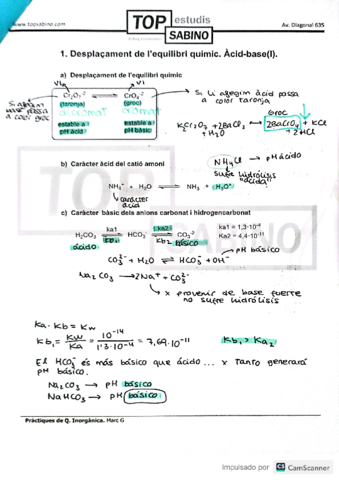 www.topsabino.com
TOP estudis SABINO
Av. Diagonal 635
1. Desplaçament de l'equilibri químic. Àcid-base(I).
a) Desplaçament de l'equilibri químic
VI VI
Cr₂O₇⁻² ⇌ CrO₄⁻²
(taronja) (groc)
dicromat cromat
estable a pH àcid
estable a pH bàsic
Si afegim base passa a color groc
Si li afegim àcid passa a color taronja
groc
K₂Cr₂O₇ + 2BaCl₂ + H₂O → 2BaCrO₄ + KCl + 2HCl
b) Caràcter àcid del catió amoni
NH₄Cl → pH ácido
sufre hidrólisis "ácida"
NH₄⁺ + H₂O ⇌ NH₃ + H₃O⁺
carácter ácid
c) Caràcter bàsic dels anions carbonat i hidrogencarbonat
ka1 ka2
H₂CO₃ ⇌ HCO₃⁻ ⇌ CO₃⁻²
ácido kb1 kb2 básico
ka1 = 1,3·10⁻⁴
Ka2 = 4,4·10⁻¹¹
pH básico
CO₃²⁻ + H₂O ⇌ HCO₃⁻ + OH⁻
Na₂CO₃ → 2Na⁺ + CO₃²⁻
x provenir de base fuerte no sufre hidrólisis
Ka · Kb = Kw
Kb₁ = Kw/Ka = 10⁻¹⁴/1'3·10⁻⁴ = 7,69·10⁻¹¹
Kb₁ > Ka₂
El HCO₃⁻ és más básico que ácido... x tanto generará pH básico.
Na₂CO₃ → pH básico
NaHCO₃ → pH básico
Pràctiques de Q. Inorgànica. Marc G
Impulsado por CS CamScanner